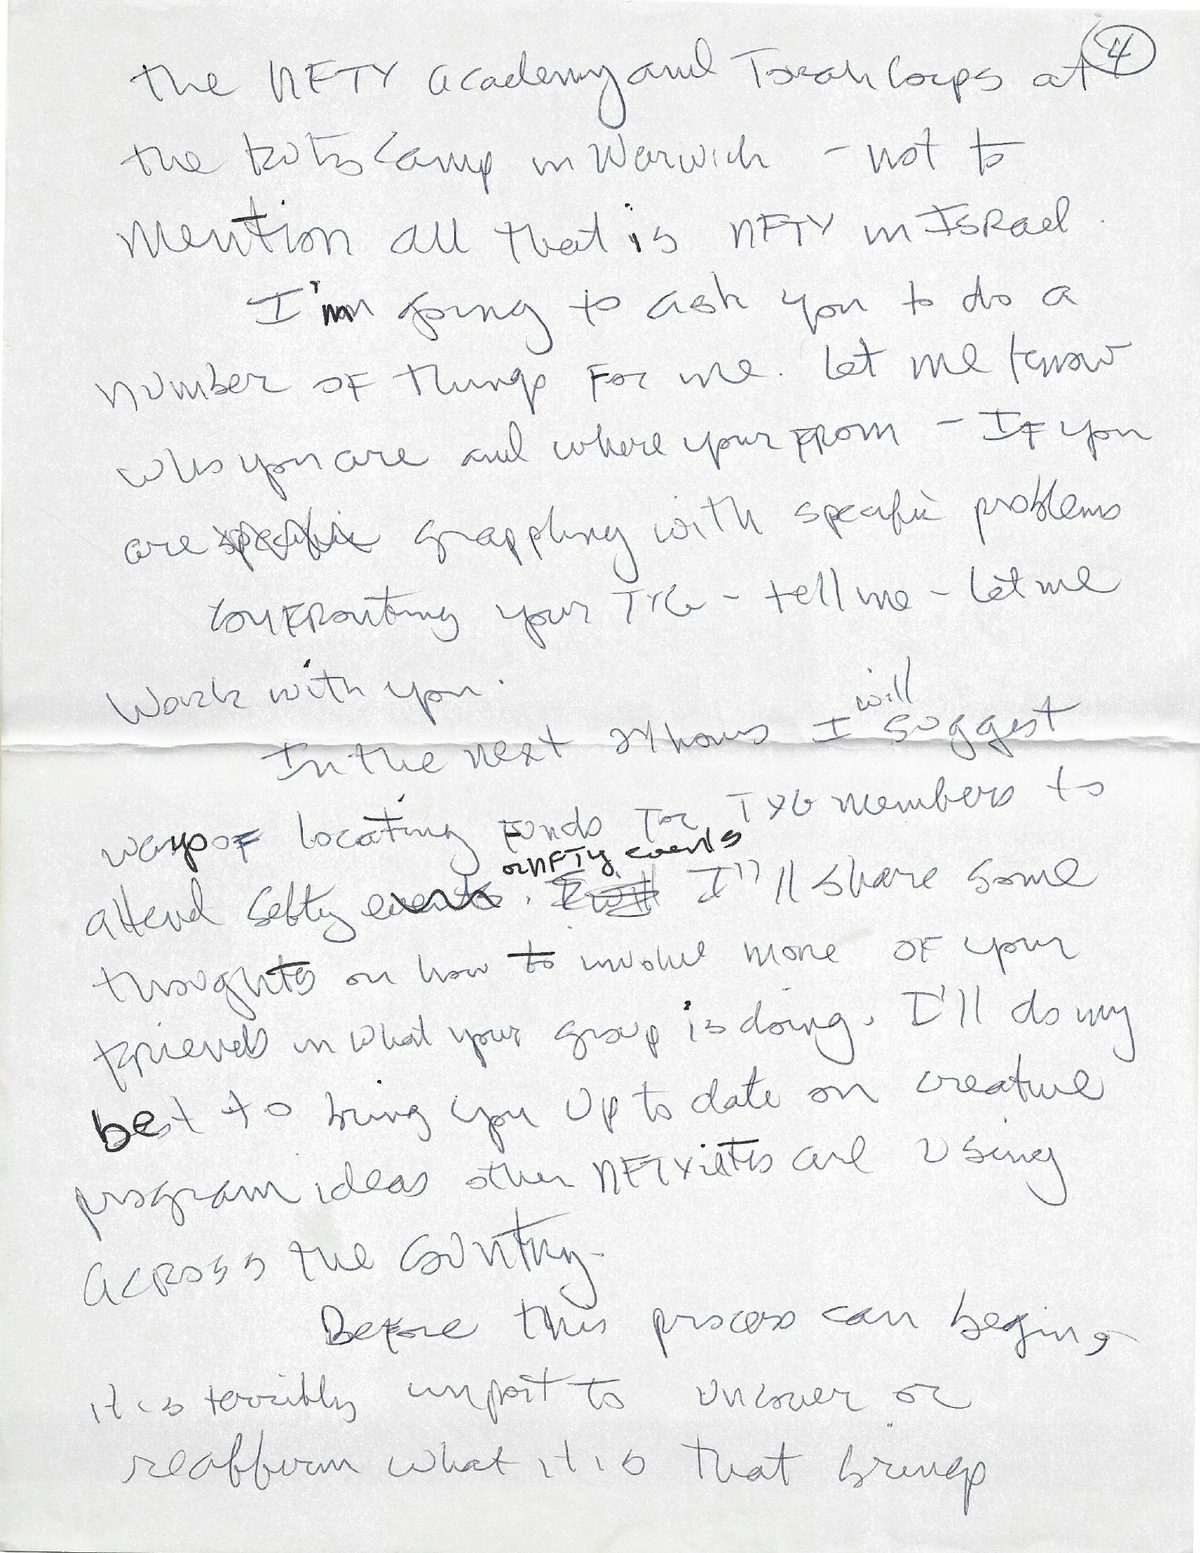 4
the NFTY Academy and Torah Corps at
the Kutz Camp in Warwick - not to
mention all that is NFTY in Israel.
I'm going to ask you to do a
number of things for me. Let me know
who you are and where your from - If you
are specific grappling with specific problems
confronting your TYG - tell me - let me
work with you.
In the next 24 hours I will suggest
ways of locating funds for TYG members to
or NFTY events
attend Sefty events. I'll share some
thoughts on how to involve more of your
friends in what your group is doing. I'll do my
best to bring you up to date on creative
program ideas other NFTYites are using
across the country.
Before this process can begin,
it is terribly import to uncover or
reaffirm what it is that brings